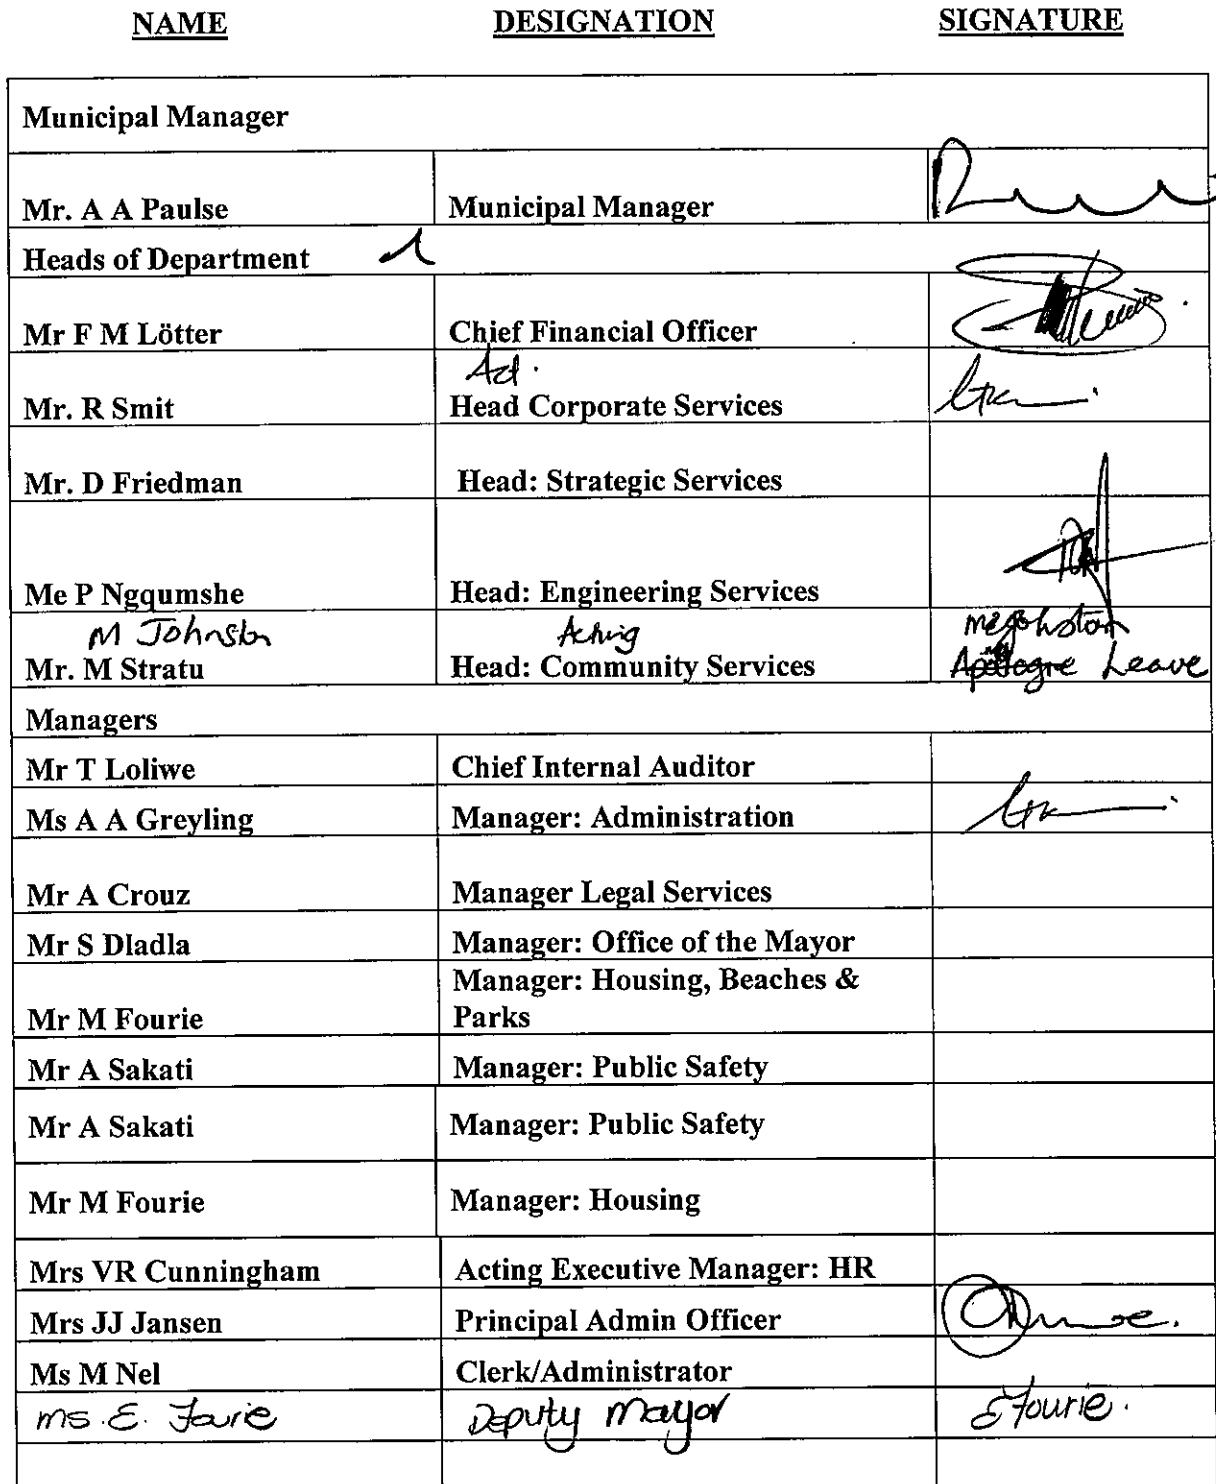 NAME DESIGNATION SIGNATURE
Municipal Manager
Mr. A A Paulse Municipal Manager
Heads of Department
Mr F M Lötter Chief Financial Officer
Act.
Mr. R Smit Head Corporate Services
Mr. D Friedman Head: Strategic Services
Me P Ngqumshe Head: Engineering Services
M Johnston Acting
Mr. M Stratu Head: Community Services Leave
Managers
Mr T Loliwe Chief Internal Auditor
Ms A A Greyling Manager: Administration
Mr A Crouz Manager Legal Services
Mr S Dladla Manager: Office of the Mayor
Manager: Housing, Beaches &
Mr M Fourie Parks
Mr A Sakati Manager: Public Safety
Mr A Sakati Manager: Public Safety
Mr M Fourie Manager: Housing
Mrs VR Cunningham Acting Executive Manager: HR
Mrs JJ Jansen Principal Admin Officer
Ms M Nel Clerk/Administrator
Ms. E. Fourie Deputy Mayor E Fourie.